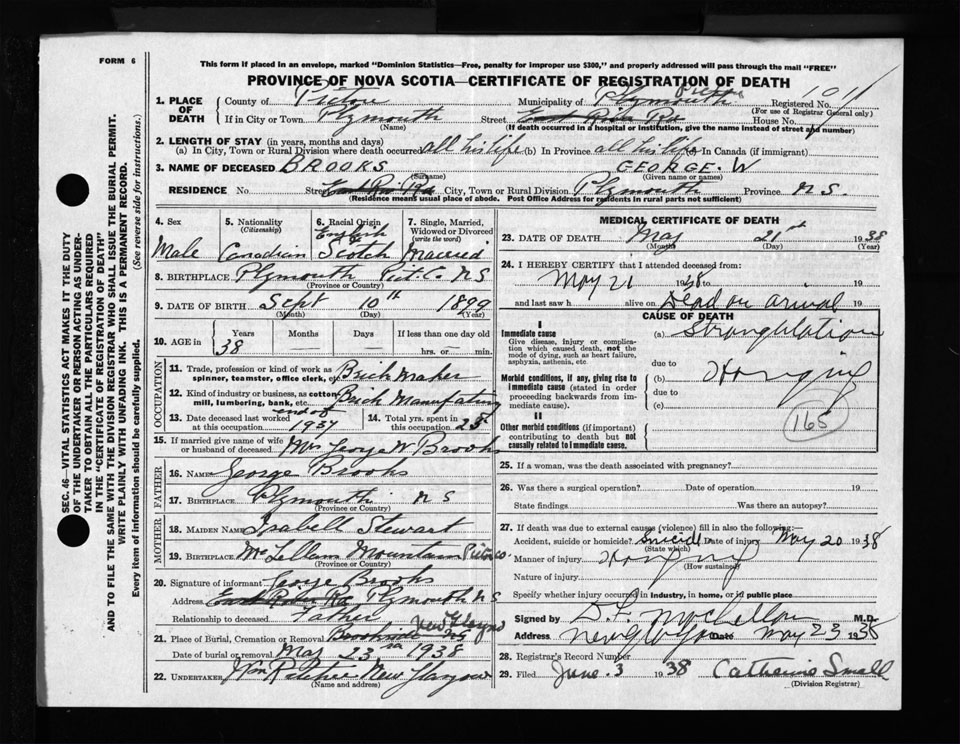 FORM 6
This form if placed in an envelope, marked "Dominion Statistics—Free, penalty for improper use $300," and properly addressed will pass through the mail "FREE"
PROVINCE OF NOVA SCOTIA—CERTIFICATE OF REGISTRATION OF DEATH
1. PLACE OF DEATH
County of Pictou Municipality of Pictou Plymouth Registered No. 1011
(For use of Registrar General only)
If in City or Town Plymouth Street East River Rd House No.
(Name) (If death occurred in a hospital or institution, give the name instead of street and number)
2. LENGTH OF STAY (in years, months and days)
(a) In City, Town or Rural Division where death occurred all his life (b) In Province all his life (c) In Canada (if immigrant)
3. NAME OF DECEASED BROOKS GEORGE. W
(Surname) (Given name or names)
RESIDENCE No. Street East River Rd City, Town or Rural Division Plymouth Province N.S.
(Residence means usual place of abode. Post Office Address for residents in rural parts not sufficient)
4. Sex Male
5. Nationality (Citizenship) Canadian
6. Racial Origin English Scotch
7. Single, Married, Widowed or Divorced (write the word) Married
8. BIRTHPLACE Plymouth Pict. C. NS
(Province or Country)
9. DATE OF BIRTH Sept 10th 1899
(Month) (Day) (Year)
10. AGE Years 38 Months Days If less than one day old hrs. or min.
OCCUPATION
11. Trade, profession or kind of work as spinner, teamster, office clerk, etc. Brick Maker
12. Kind of industry or business, as cotton mill, lumbering, bank, etc. Brick Manufacturing
13. Date deceased last worked at this occupation end of 1937
14. Total yrs. spent in this occupation 25
15. If married give name of wife or husband of deceased Mrs George W Brooks
FATHER
16. NAME George Brooks
17. BIRTHPLACE Plymouth NS
(Province or Country)
MOTHER
18. MAIDEN NAME Isabell Stewart
19. BIRTHPLACE McLellans Mountain Pictou Co.
(Province or Country)
20. Signature of informant George Brooks
Address East River Rd Plymouth NS
Relationship to deceased Father
21. Place of Burial, Cremation or Removal Brookside NS New Glasgow
Date of burial or removal May 23rd 1938
22. UNDERTAKER New Glasgow
(Name and address)
MEDICAL CERTIFICATE OF DEATH
23. DATE OF DEATH May 21st 1938
(Month) (Day) (Year)
24. I HEREBY CERTIFY that I attended deceased from:
May 21 1938 to 19
and last saw h alive on Dead on arrival 19
CAUSE OF DEATH
I
Immediate cause
Give disease, injury or complication which caused death, not the mode of dying, such as heart failure, asphyxia, asthenia, etc.
(a) Strangulation
due to
Morbid conditions, if any, giving rise to immediate cause (stated in order proceeding backwards from immediate cause).
(b) Hanging
due to
(c)
II
Other morbid conditions (if important) contributing to death but not causally related to immediate cause.
165
25. If a woman, was the death associated with pregnancy?
26. Was there a surgical operation? Date of operation 19
State findings Was there an autopsy?
27. If death was due to external causes (violence) fill in also the following:—
Accident, suicide or homicide? Suicide Date of injury May 20 1938
(State which)
Manner of injury Hanging
(How sustained)
Nature of injury
Specify whether injury occurred in industry, in home, or in public place
Signed by M.D.
Address New Glasgow Date May 23 1938
28. Registrar's Record Number
29. Filed June 3 1938 Catherine Small
(Division Registrar)
SEC. 46—VITAL STATISTICS ACT MAKES IT THE DUTY OF THE UNDERTAKER OR PERSON ACTING AS UNDERTAKER TO OBTAIN ALL THE PARTICULARS REQUIRED IN THE "CERTIFICATE OF REGISTRATION OF DEATH" AND TO FILE THE SAME WITH THE DIVISION REGISTRAR WHO SHALL ISSUE THE BURIAL PERMIT.
WRITE PLAINLY WITH UNFADING INK. THIS IS A PERMANENT RECORD.
Every item of information should be carefully supplied. (See reverse side for instructions.)